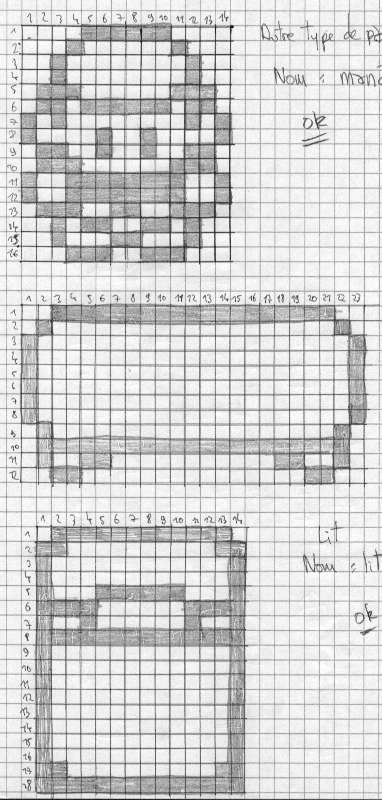 1 2 3 4 5 6 7 8 9 10 11 12 13 14
1
2
3
4
5
6
7
8
9
10
11
12
13
14
15
16
Autre type de
Nom :
ok
1 2 3 4 5 6 7 8 9 10 11 12 13 14 15 16 17 18 19 20 21 22 23
1
2
3
4
5
6
7
8
9
10
11
12
1 2 3 4 5 6 7 8 9 10 11 12 13 14
1
2
3
4
5
6
7
8
9
10
11
12
13
14
15
16
17
Lit
Nom : lit
ok